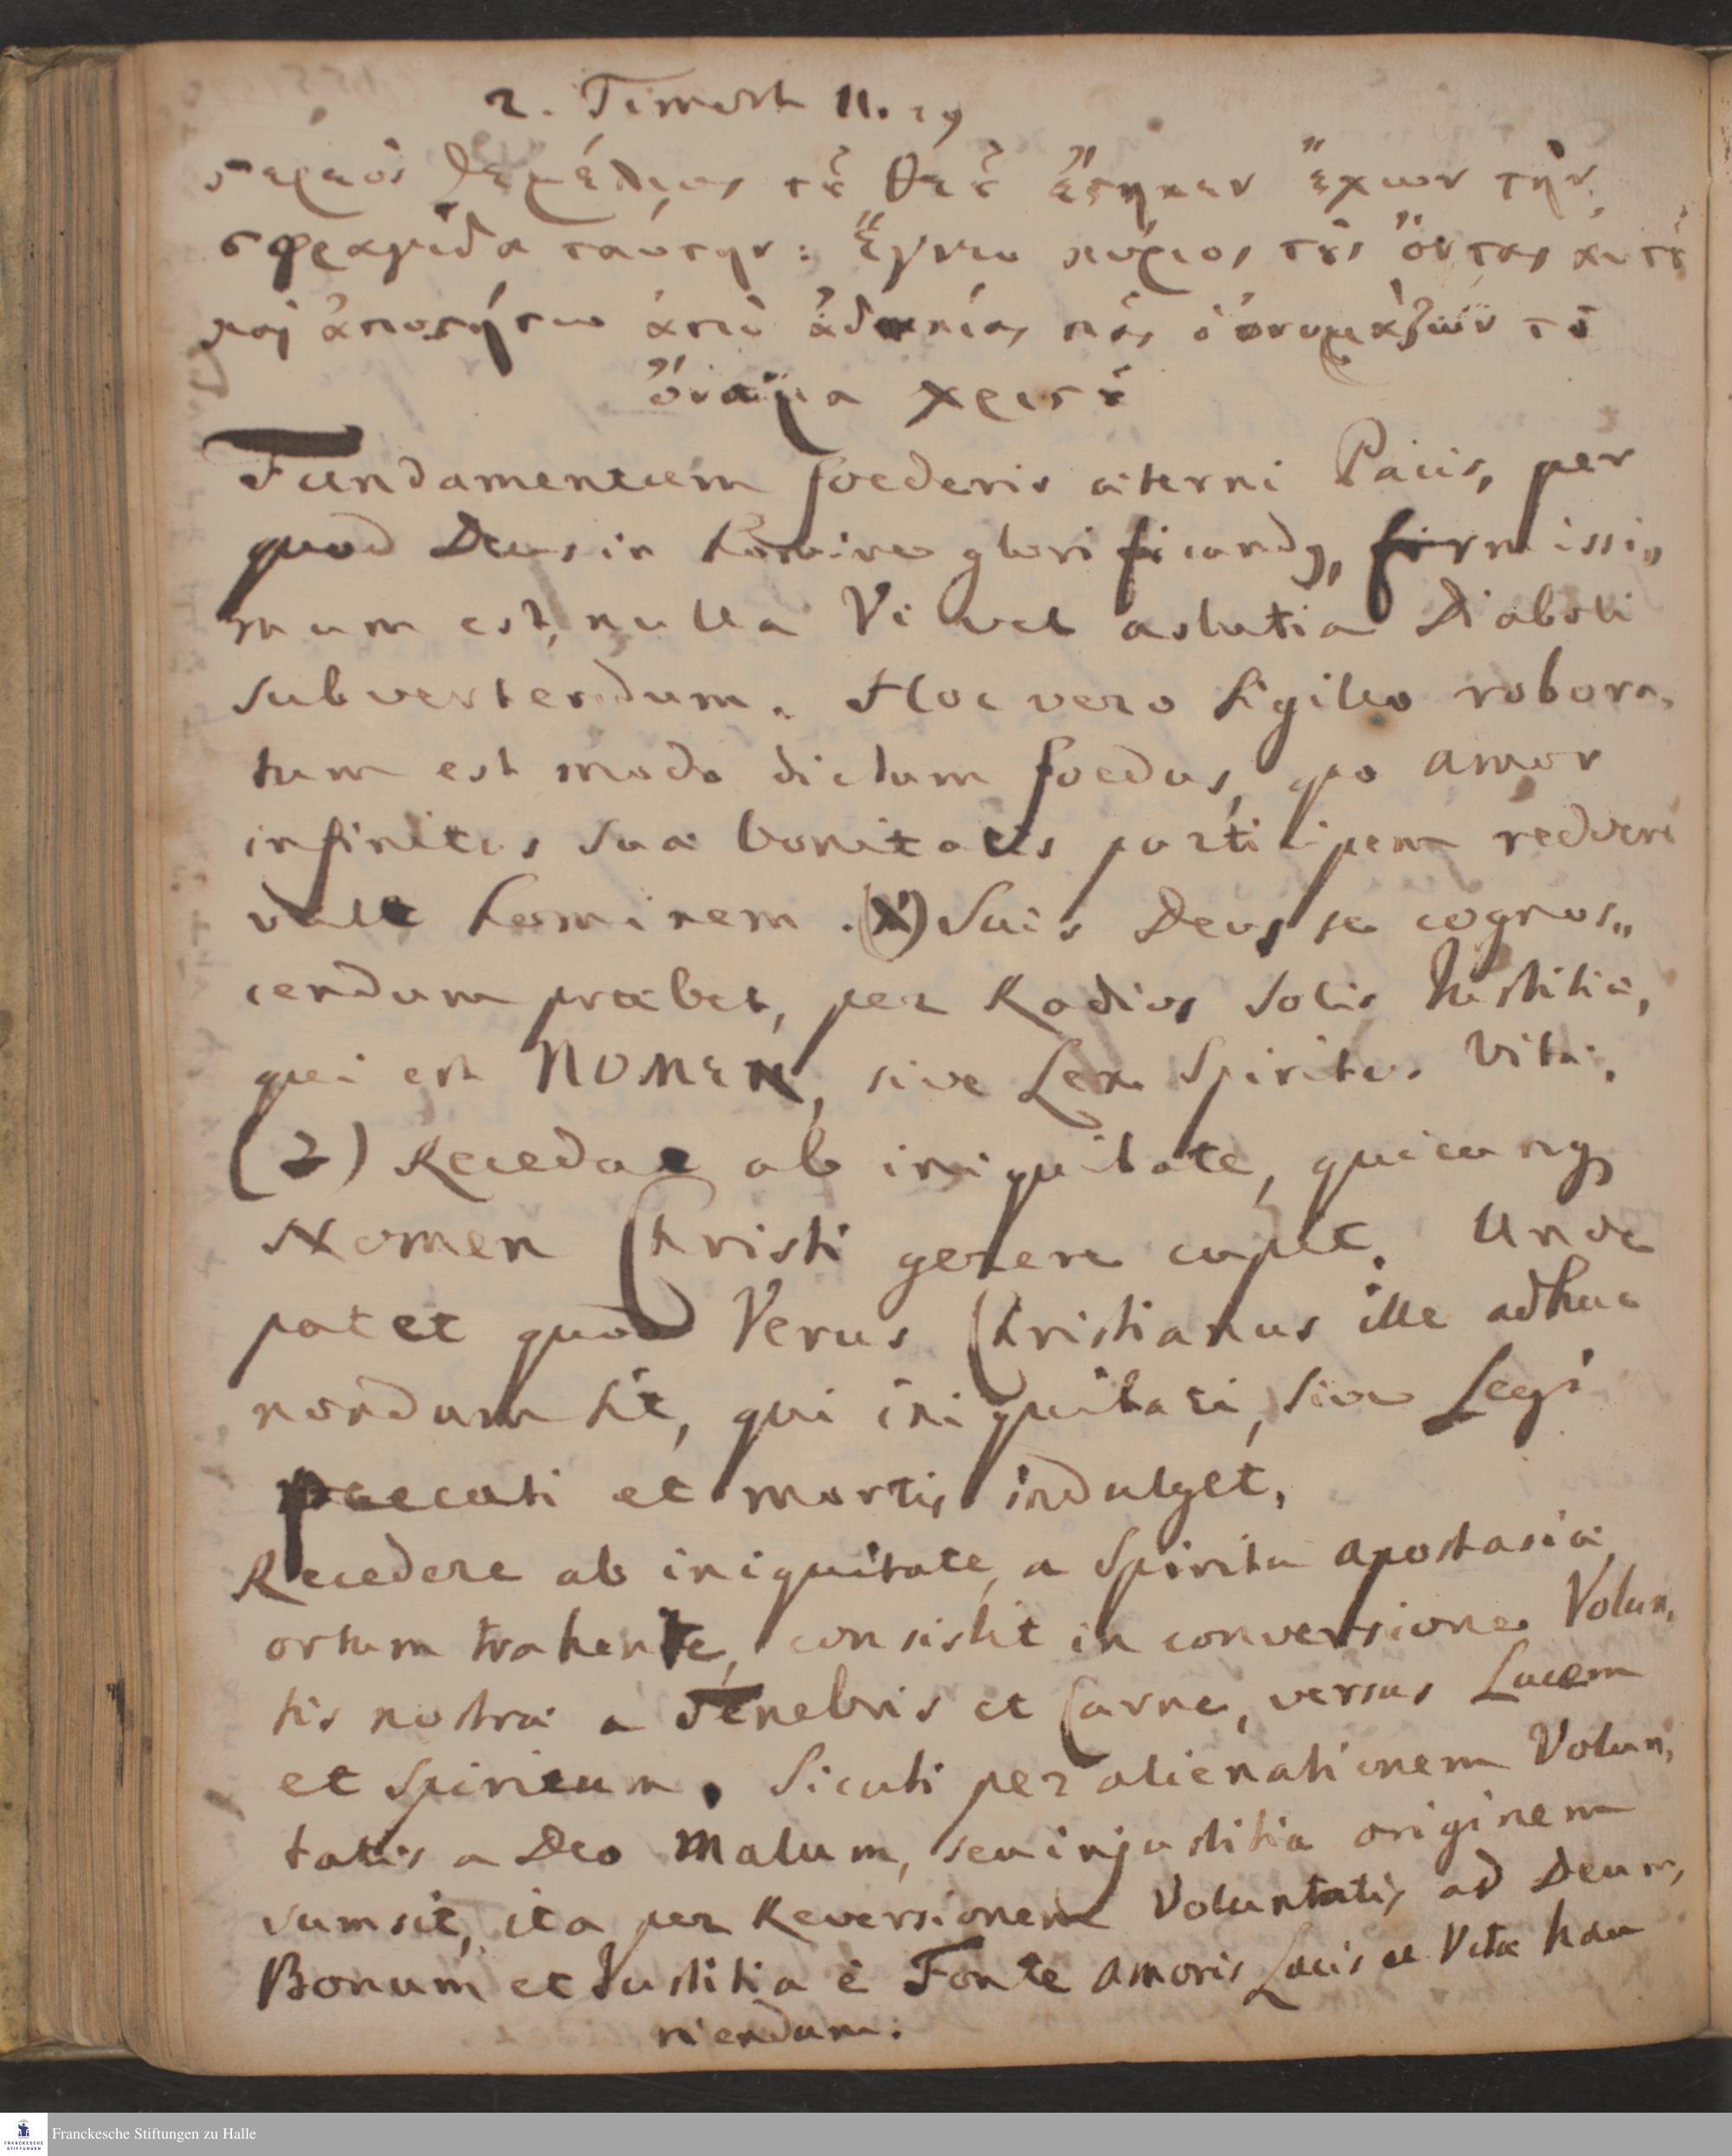 2. Timoth II. 19
ςερεὸς θεμέλιος τȣ͂ θεȣ͂ ἕςηκεν ἔχων τὴν
σφραγίδα ταύτην: Ἔγνω κύριος τȣ̀ς ὄντας αυτȣ͂
καὶ ἀποςήτω ἀπὸ ἀδικίας πᾶς ὁ ὀνομάζων τὸ
ὄνομα χριςȣ͂
Fundamentum foederis æterni Pacis, per
quod Deus in homine glorificandq, firmissi„
mum est, nulla Vi vel astutia Diaboli
subvertendum. Hoc vero sigillo robora,
tum est modo dictum foedus, quo amor
infinitus suæ bonitatis participem reddere
vult hominem. (1) Suis Deus se cognos„
cendum præbet, per Radios Solis Iustitiæ,
qui est NOMEN, sive Lex Spiritus Vitæ.
(2) Recedat ab iniquitate, quicunq
Nomen Christi gerere cupit. Unde
patet quod Verus Christianus ille adhuc
nondum sit, qui iniquitati, sive Legi
paecati et mortis indulget.
Recedere ab iniquitate, a Spiritu apostasiæ
ortum trahente, consistit in conversione Volun,
tis nostræ a Tenebris et Carne, versus Lucem
et Spiritum. Sicuti per alienationem Volun,
tatis a Deo Malum, seu injustitia originem
sumsit, ita per Reversionem Voluntatis ad Deum,
Bonum et Iustitia è Fonte amoris Lucis et Vitæ hau
riendum.
Franckesche Stiftungen zu Halle